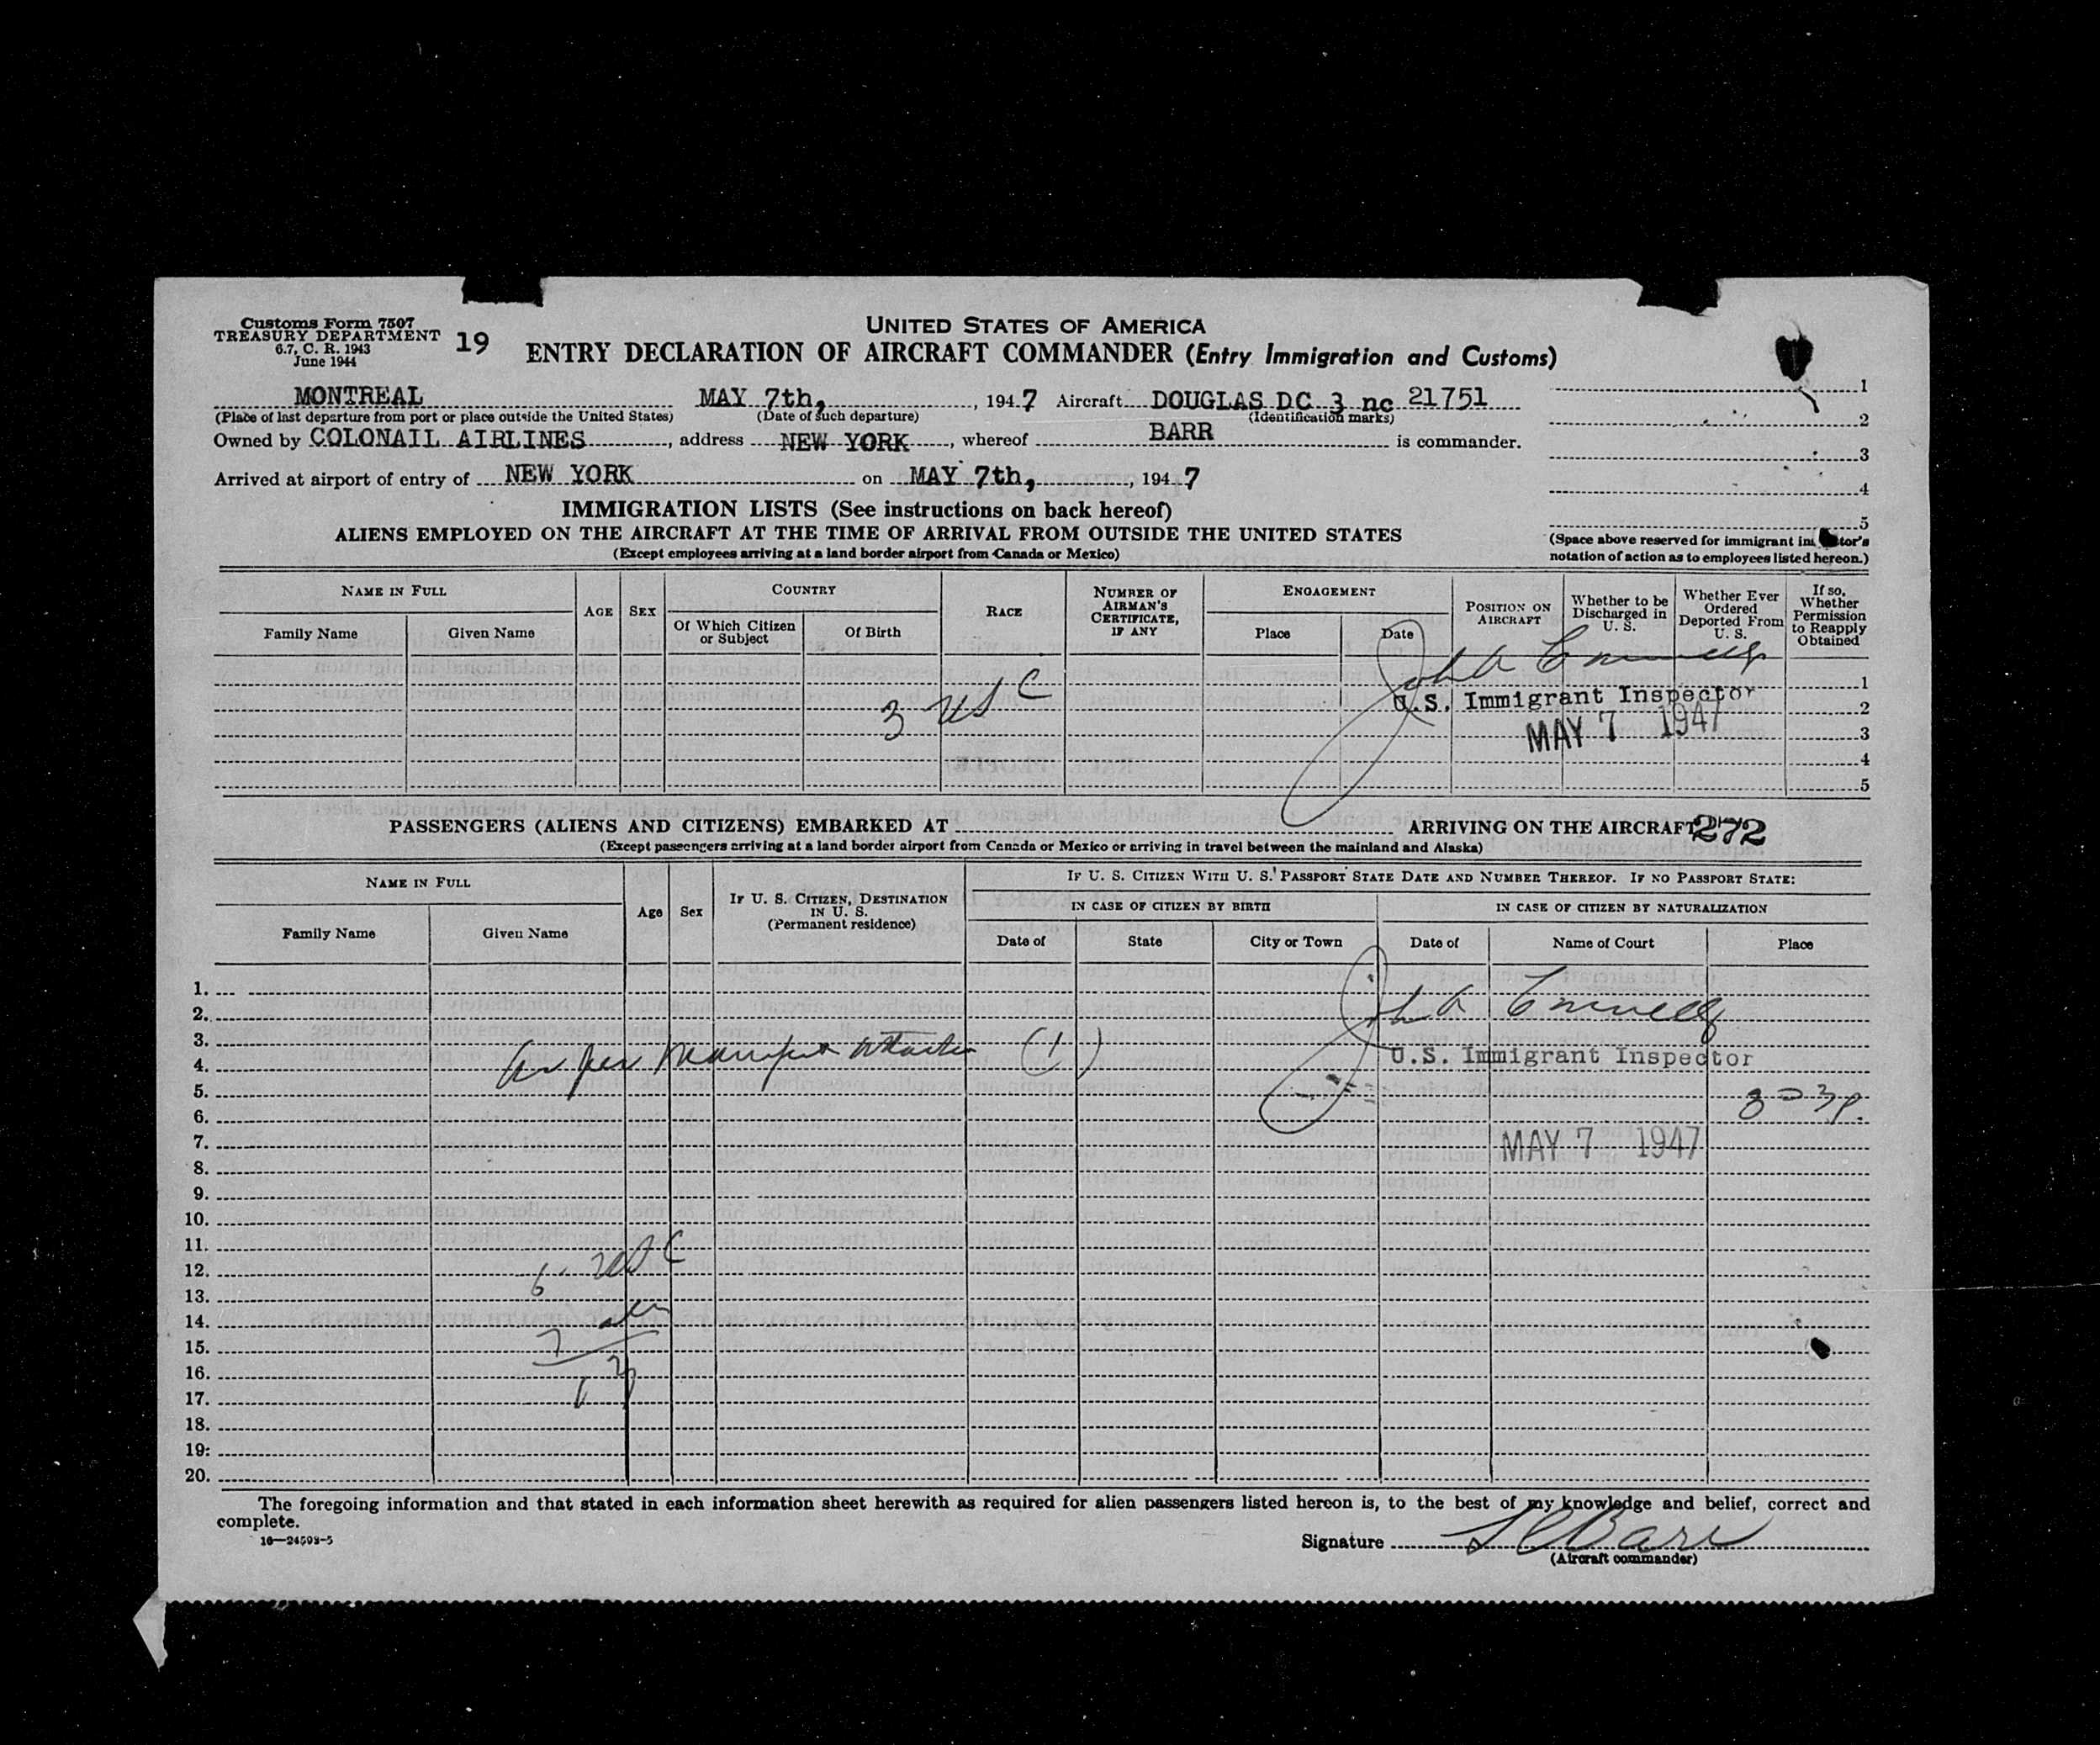 Customs Form 7507
TREASURY DEPARTMENT
6.7, C. R. 1943
June 1944
19
UNITED STATES OF AMERICA
ENTRY DECLARATION OF AIRCRAFT COMMANDER (Entry Immigration and Customs)
MONTREAL MAY 7th, , 194 7 Aircraft DOUGLAS DC 3 nc 21751
(Place of last departure from port or place outside the United States) (Date of such departure) (Identification marks)
Owned by COLONAIL AIRLINES , address NEW YORK , whereof BARR is commander.
Arrived at airport of entry of NEW YORK on MAY 7th, , 194 7
1
2
3
4
5
(Space above reserved for immigrant inspector's
notation of action as to employees listed hereon.)
IMMIGRATION LISTS (See instructions on back hereof)
ALIENS EMPLOYED ON THE AIRCRAFT AT THE TIME OF ARRIVAL FROM OUTSIDE THE UNITED STATES
(Except employees arriving at a land border airport from Canada or Mexico)
NAME IN FULL
Family Name Given Name
AGE SEX
COUNTRY
Of Which Citizen or Subject Of Birth
RACE
NUMBER OF AIRMAN'S CERTIFICATE, IF ANY
ENGAGEMENT
Place Date
POSITION ON AIRCRAFT
Whether to be Discharged in U. S.
Whether Ever Ordered Deported From U. S.
If so, Whether Permission to Reapply Obtained
3 USC
U.S. Immigrant Inspector
MAY 7 1947
1
2
3
4
5
PASSENGERS (ALIENS AND CITIZENS) EMBARKED AT ARRIVING ON THE AIRCRAFT 272
(Except passengers arriving at a land border airport from Canada or Mexico or arriving in travel between the mainland and Alaska)
NAME IN FULL
Family Name Given Name
Age Sex
IF U. S. CITIZEN, DESTINATION IN U. S. (Permanent residence)
IF U. S. CITIZEN WITH U. S. PASSPORT STATE DATE AND NUMBER THEREOF. IF NO PASSPORT STATE:
IN CASE OF CITIZEN BY BIRTH IN CASE OF CITIZEN BY NATURALIZATION
Date of State City or Town Date of Name of Court Place
1.
2.
3.
4. as per manifest attached (1) U.S. Immigrant Inspector
5.
6.
7. MAY 7 1947
8.
9.
10.
11.
12. 6 USC
13.
14.
15. 7
16.
17.
18.
19.
20.
The foregoing information and that stated in each information sheet herewith as required for alien passengers listed hereon is, to the best of my knowledge and belief, correct and
complete.
16—24598-5
Signature Barr
(Aircraft commander)